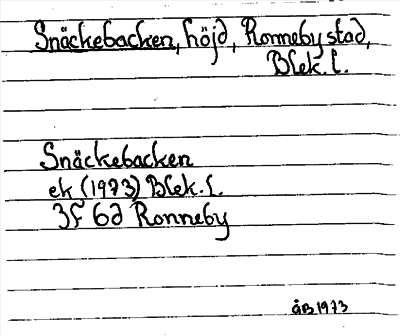 Snäckebacken, höjd, Ronneby stad,
Blek. l.
Snäckebacken
ek (1973) Blek. l.
3F 6d Ronneby
ÅB 1973